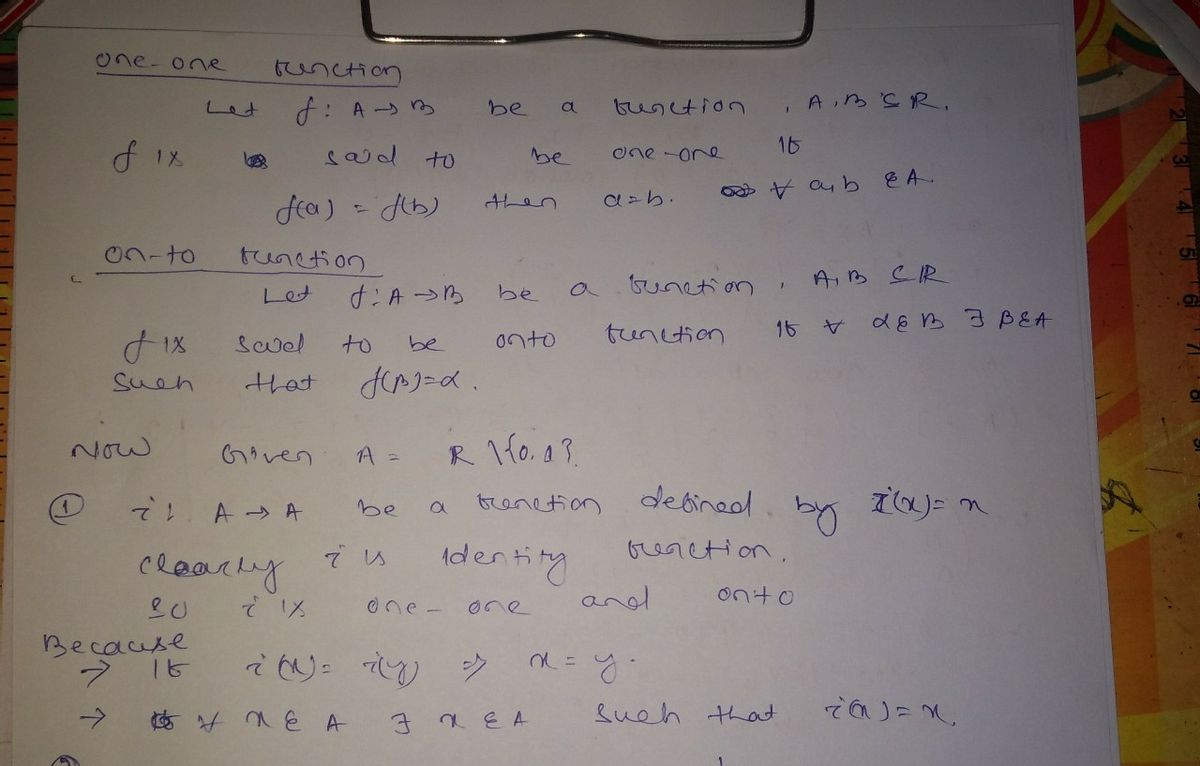 one-one function
Let f: A → B be a function, A, B ⊆ R.
f is said to be one-one if
f(a) = f(b) then a=b. ∀ a,b ∈ A.
on-to function
Let f: A → B be a function, A, B ⊆ R
f is said to be onto function if ∀ α ∈ B ∃ β ∈ A
such that f(β)=α.
Now Given A = R \ {0,1}.
① i: A → A be a function defined by i(x)= x
clearly i is Identity function.
so i is one-one and onto
Because
→ If i(x)= i(y) ⇒ x = y.
→ ∀ x ∈ A ∃ x ∈ A such that i(x)=x.